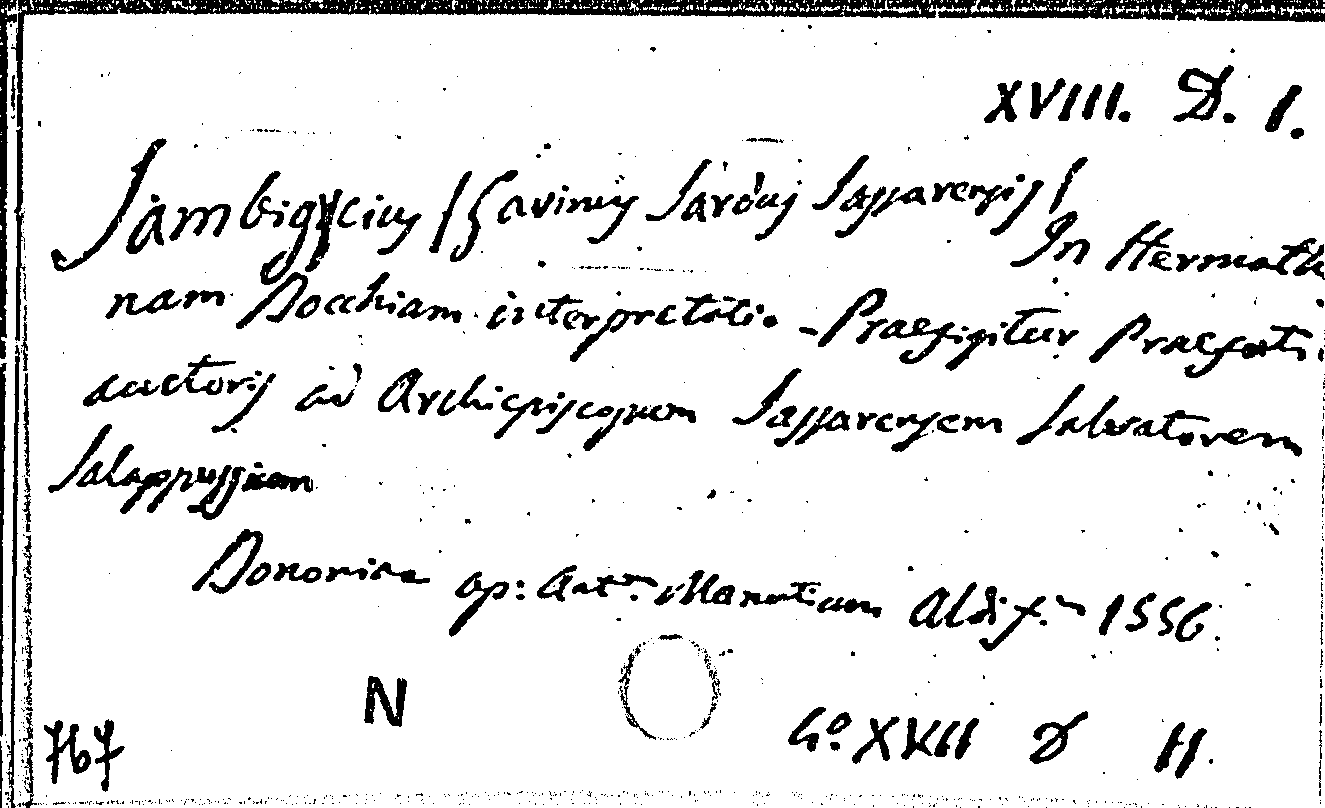 XVIII. D. I.
Sambigucius (Gavinus Sardus Sassarensis)
In Hermathe
nam Bocchiam interpretatio - Praefigitur Praefati
auctoris ad Archiepiscopum Sassarensem Salvatorem
Salappussium
Bononiae ap: Ant.m Manutium Aldi f.m 1556.
N
4.o XVII D II.
767